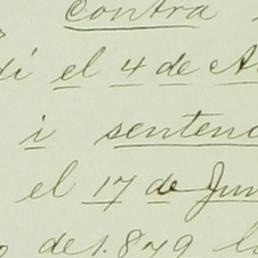 contra
el 4 de
i sentenc
el 17 de Jun
de 1.879